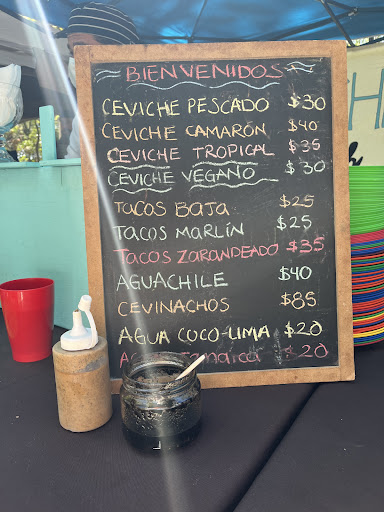 BIENVENIDOS
CEVICHE PESCADO $30
CEVICHE CAMARÓN $40
CEVICHE TROPICAL $35
CEVICHE VEGANO $30
TACOS BAJA $25
TACOS MARLÍN $25
TACOS ZARANDEADO $35
AGUACHILE $40
CEVINACHOS $85
AGUA COCO-LIMA $20
AGUA JAMAICA $20